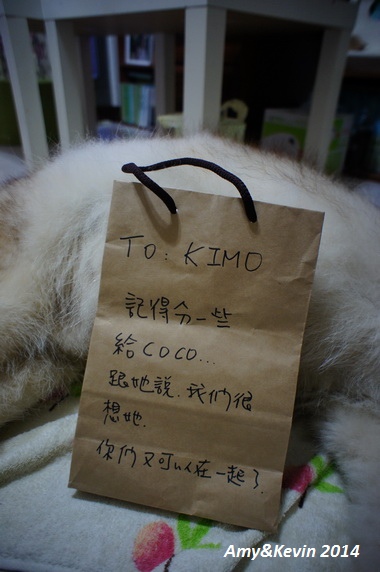 TO: KIMO
記得分一些
給COCO...
跟她說.我們很
想她.
你們又可以在一起了.
Amy&Kevin 2014